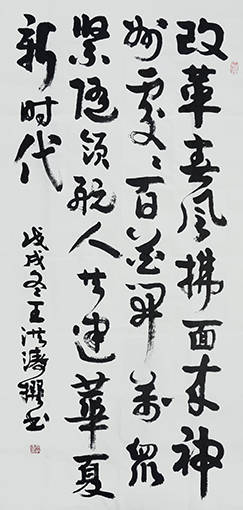 改革春风拂面来神
州处处百花开万众
紧随领航人共建华夏
新时代
戊戌冬王洪涛撰书